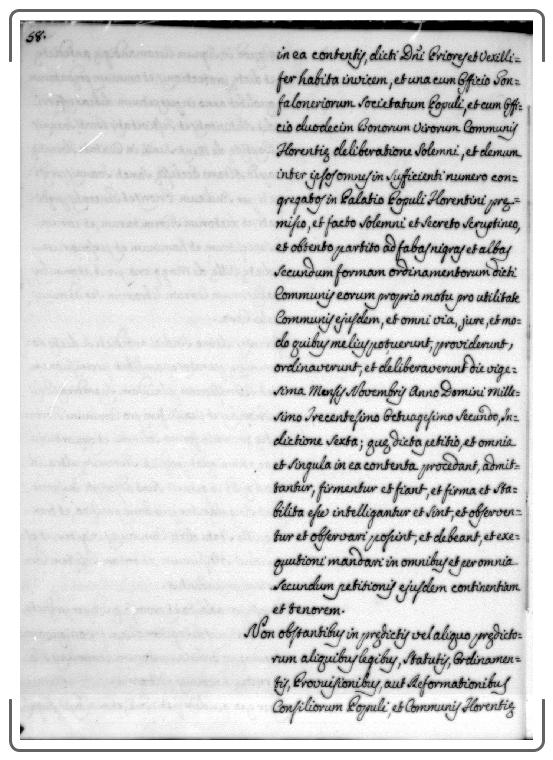 58.
in ea contentis, dicti Dñi Priores et Vexilli=
fer habita invicem, et una cum Officio Gon=
faloneriorum Societatum Populi, et cum Offi=
cio duodecim Bonorum Virorum Communis
Florentię deliberatione Solemni, et demum
inter ipsos omnes in Sufficienti numero con=
gregatos in Palatio Populi Florentini pręę=
misso, et facto Solemni et Secreto Scruptineo,
et obtento partito ad fabas nigras et albas
Secundum formam ordinamentorum dicti
Communis eorum proprio motu pro utilitate
Communis ejusdem, et omni via, jure, et mo=
do quibus melius potuerunt, providerunt,
ordinaverunt, et deliberaverunt die vige=
sima Mensis Novembris Anno Domini Mille=
simo Trecentesimo Octuagesimo Secundo, In=
dictione Sexta; quęę dicta petitio, et omnia
et Singula in ea contenta procedant, admit=
tantur, firmentur et fiant, et firma et Sta=
bilita esse intelligantur et Sint, et observen=
tur et observari possint, et debeant, et exe=
quutioni mandari in omnibus et per omnia
Secundum petitionis ejusdem continentiam
et tenorem.
Non obstantibus in prędictis vel aliquo prędicto=
rum aliquibus legibus, Statutis, Ordinamen=
tis, Provisionibus, aut Reformationibus
Consiliorum Populi, et Communis Florentię